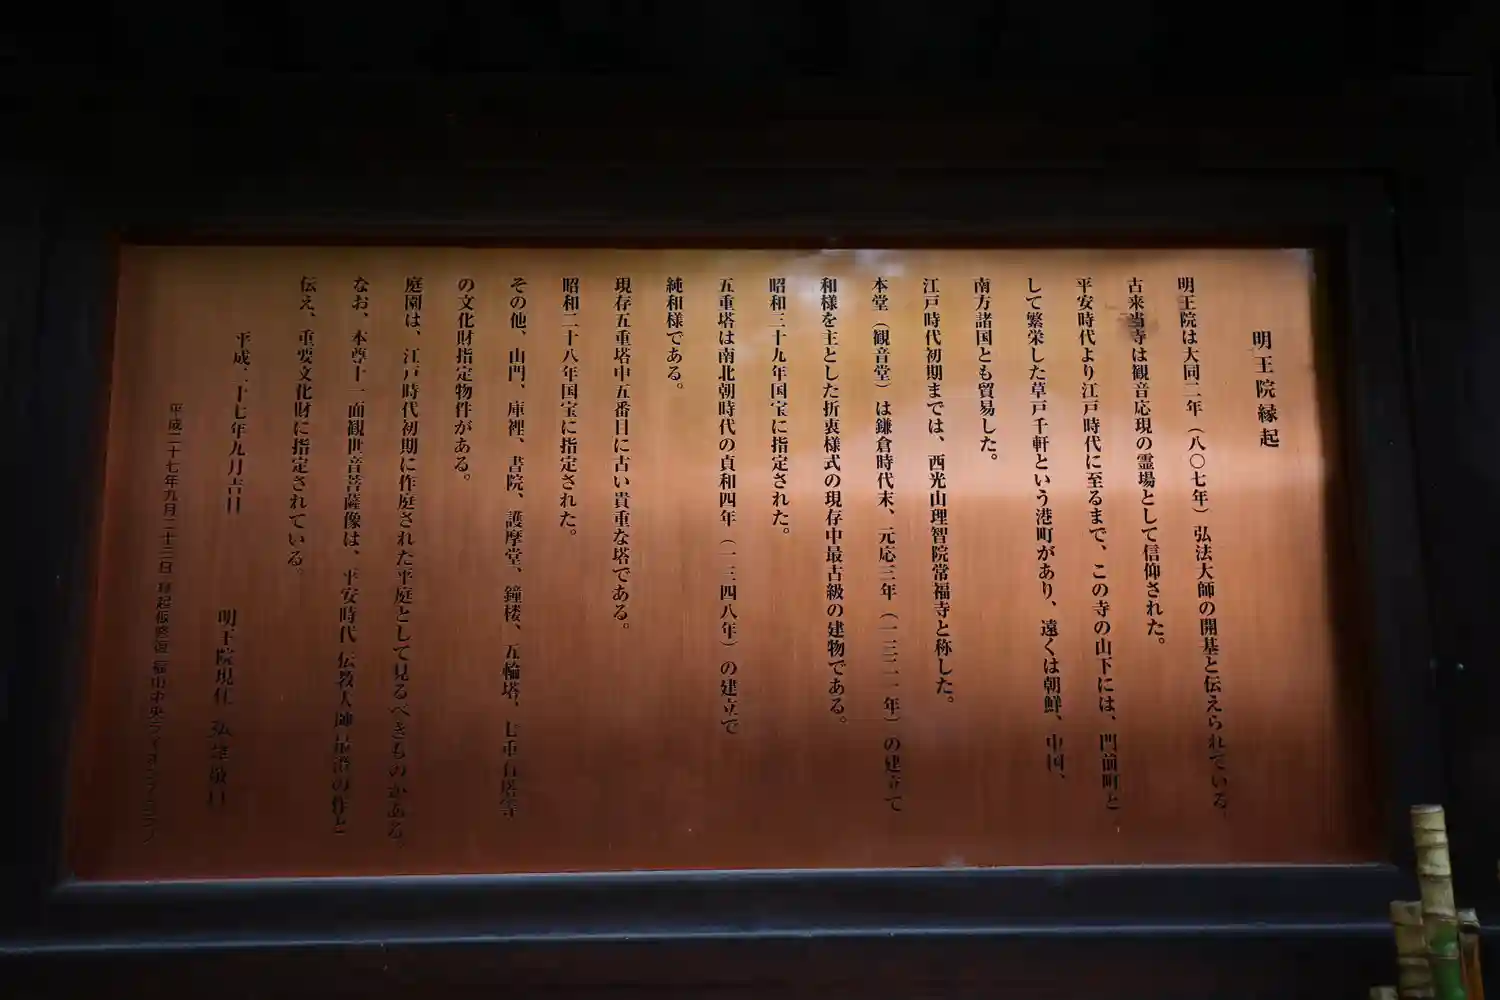 明王院縁起
明王院は大同二年（八〇七年）弘法大師の開基と伝えられている。
古来当寺は観音応現の霊場として信仰された。
平安時代より江戸時代に至るまで、この寺の山下には、門前町と
して繁栄した草戸千軒という港町があり、遠くは朝鮮、中国、
南方諸国とも貿易した。
江戸時代初期までは、西光山理智院常福寺と称した。
本堂（観音堂）は鎌倉時代末、元応三年（一三二一年）の建立で
和様を主とした折衷様式の現存中最古級の建物である。
昭和三十九年国宝に指定された。
五重塔は南北朝時代の貞和四年（一三四八年）の建立で
純和様である。
現存五重塔中五番目に古い貴重な塔である。
昭和二十八年国宝に指定された。
その他、山門、庫裡、書院、護摩堂、鐘楼、五輪塔、七重石塔等
の文化財指定物件がある。
庭園は、江戸時代初期に作庭された平庭として見るべきものがある。
なお、本尊十一面観世音菩薩像は、平安時代 伝教大師最澄の作と
伝え、重要文化財に指定されている。
平成二十七年九月吉日
明王院現住
平成二十七年九月二十三日 縁起板修復 福山中央ライオンズクラブ